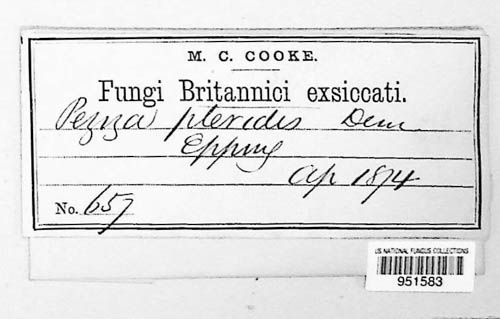 M. C. COOKE.
Fungi Britannici exsiccati.
Peziza pteridis
Epping
Ap 1874
No. 657
US NATIONAL FUNGUS COLLECTIONS
951583